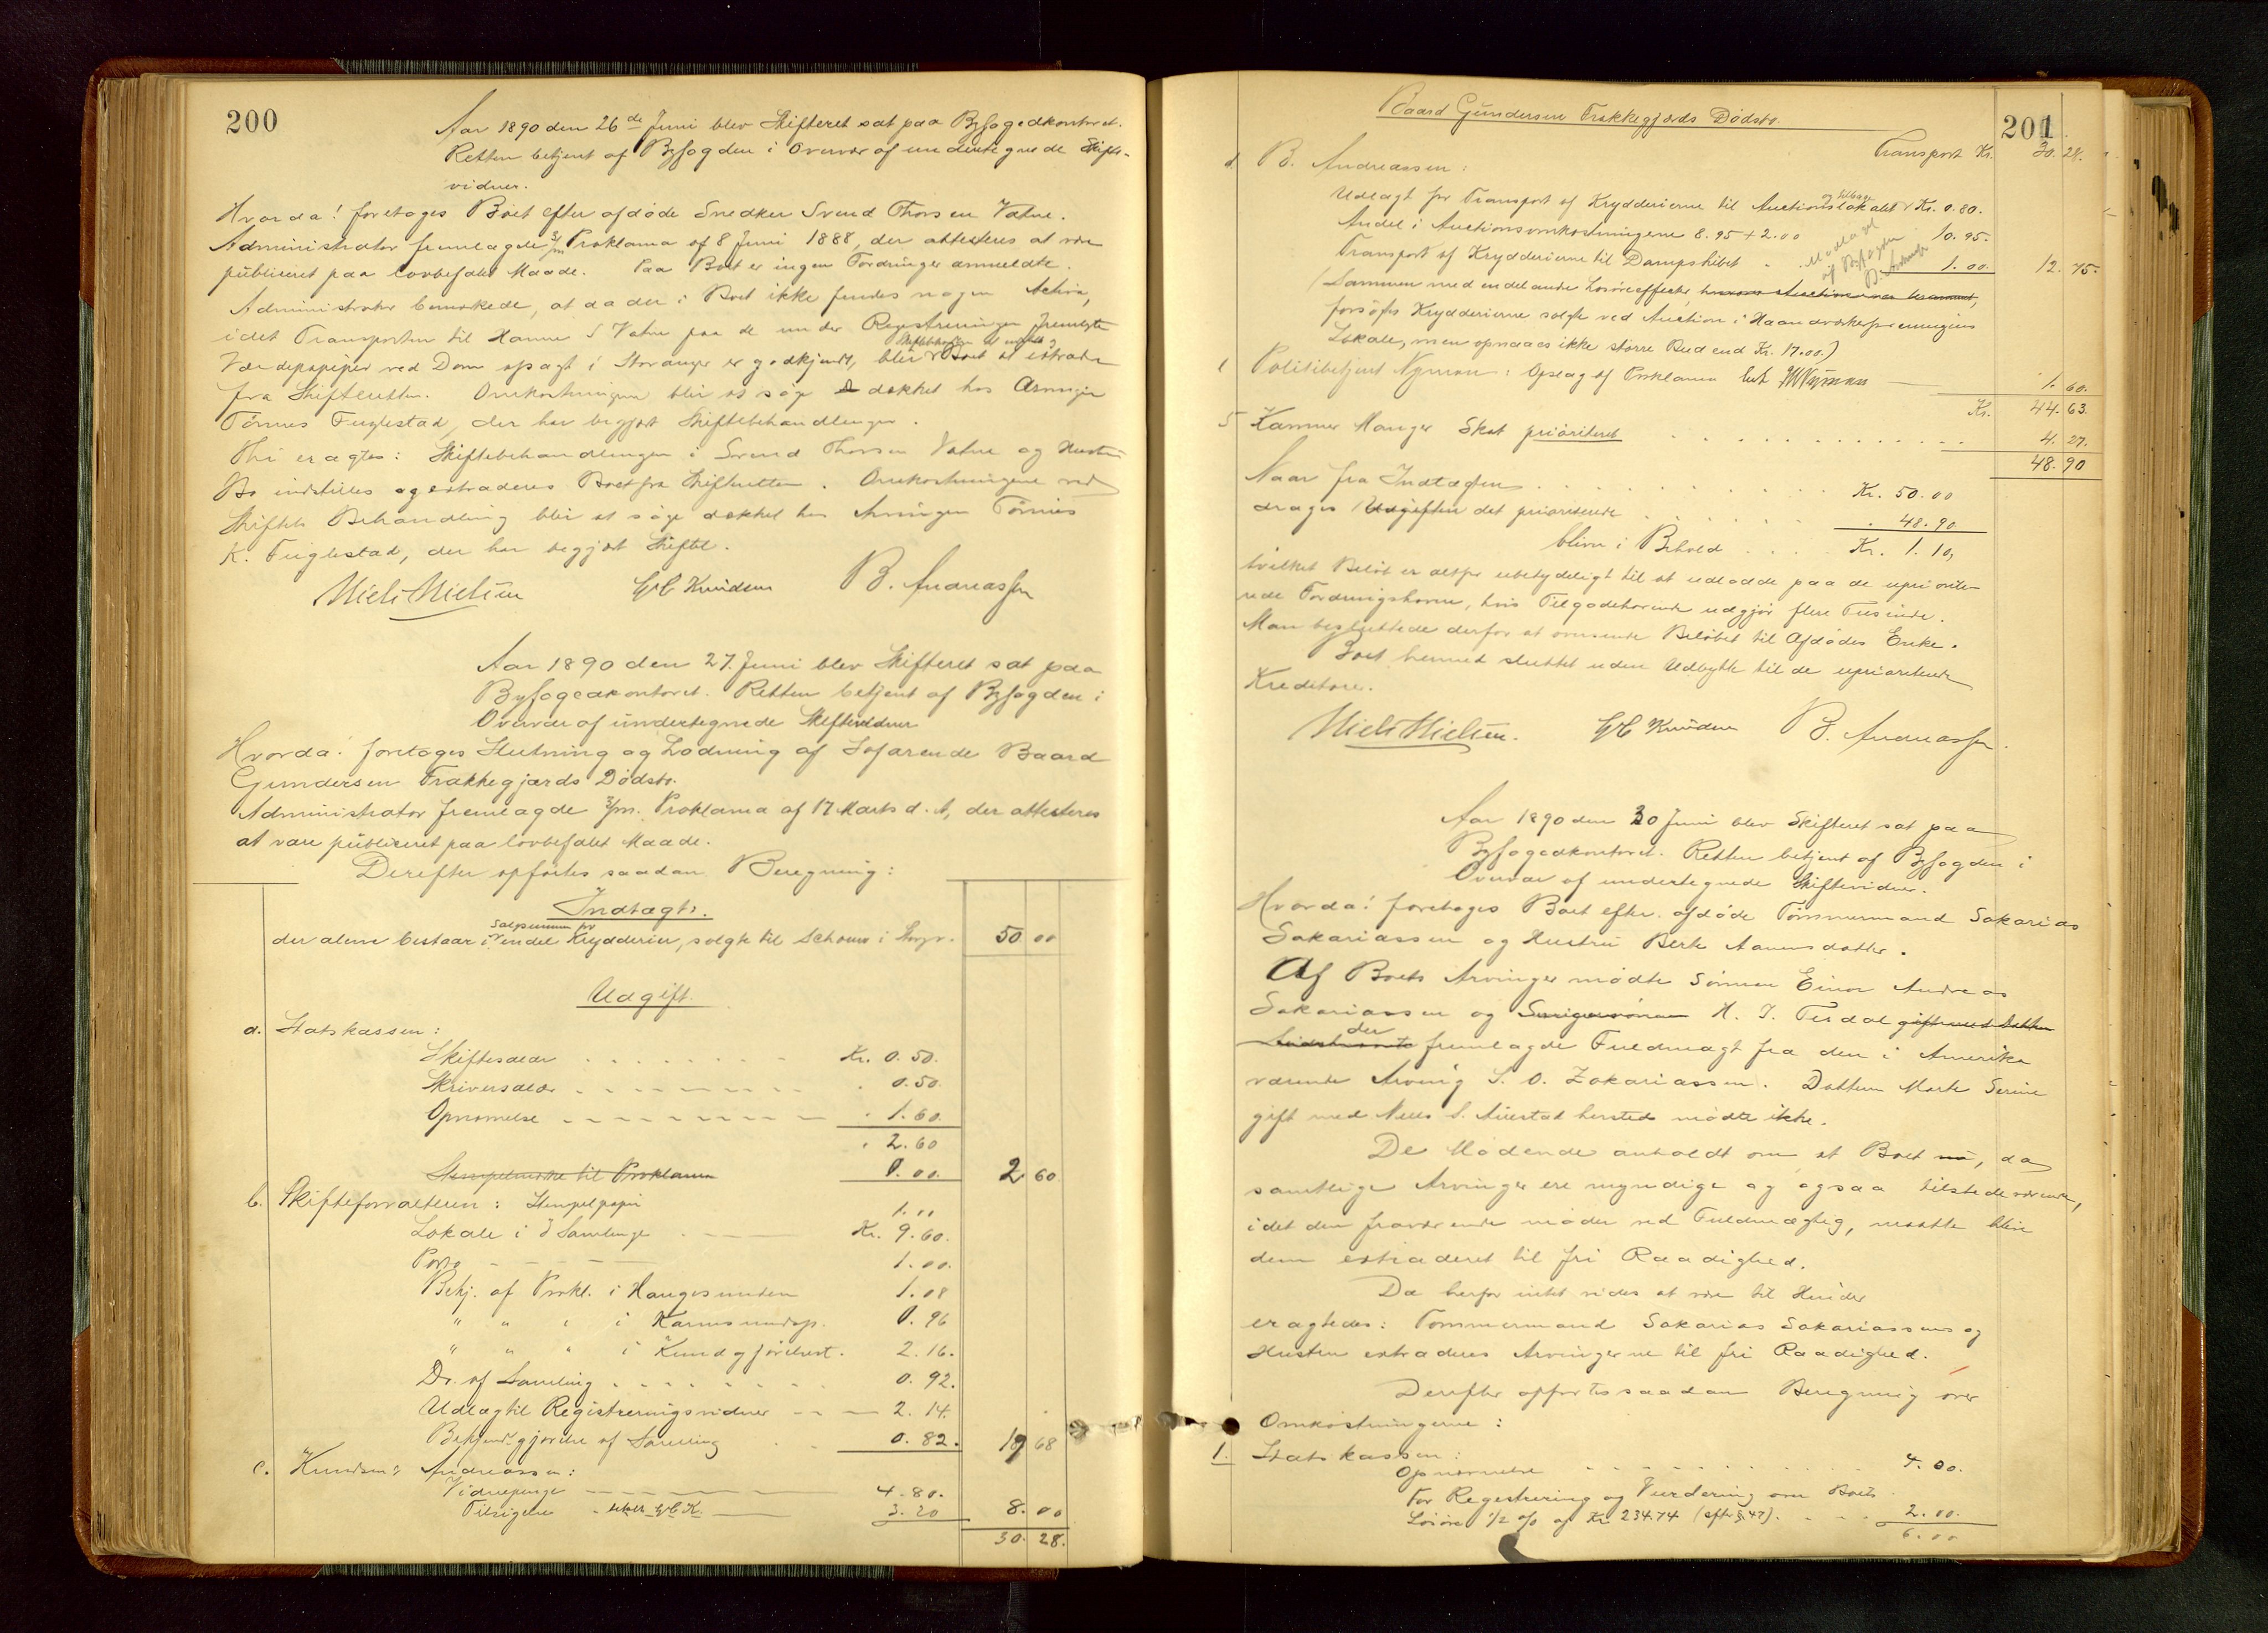 200
Aar 1890 den 26de Juni blev Skifteret sat paa Byfogedkontoret.
Retten betjent af Byfogden i Overvær af undertegnede Skifte-
vidner.
Hvorda! foretoges Boet efter afdøde Snedker Svend Thorsen Vatne.
Administrator fremlagde 3/m Proklama af 8 Juni 1888, der attesteres at være
publiceret paa lovbefalet Maade. Paa Boet er ingen Fordringer anmeldte.
Administrator bemærkede, at da der i Boet ikke findes nogen Activa,
idet Transporten til Hanne S Vatne paa de under Registreringen fremlagte
Værdipapirer ved Dom afsagt i Stavanger er godkjendt, blir Boet at extradere
fra Skifteretten. Omkostningerne blir at søge dækket hos Arvingen
Tönnes Fuglestad, der har begjært Skiftebehandlingen.
Thi eragtes: Skiftebehandlingen i Svend Thorsen Vatne og Hustru
Bo indstilles og extraderes Boet fra Skifteretten. Omkostningerne ved
Skiftets Behandling blir at søge dækket hos Arvingen Tönnes
K. Fuglestad, der har begjært Skiftet.
Niels Nielsen G C Knudsen B. Andreassen
Aar 1890 den 27. Juni blev Skifteret sat paa
Byfogedkontoret. Retten betjent af Byfogden i
Overvær af undertegnede Skiftevidner
Hvorda! foretoges Slutning og Lodning af Sofarende Baard
Gundersen Frakkegjærds Dødsbo.
Administrator fremlagde 3/m. Proklama af 17 Marts d. A, der attesteres
at være publiceret paa lovbefalet Maade.
Derefter opførtes saadan Beregning:
Indtægt.
der alene bestaar i Salgssummen for endel Krydderier, solgte til Schouw i Stvgr. 50 00
Udgift.
a. Statskassen:
Skiftesalær Kr. 0.50.
Skriversalær 0.50.
Opnævnelse 1.60.
2.60
Stempelmærke til Proklama 0.00. 2 60
b. Skifteforvalteren: Stempelpapir 1."
Lokale i 3 Samlinger Kr. 9.60.
Porto 1.00.
Bekj. af Prokl. i Haugesunderen 1.08
" " " i Karmsundsp. 0.96
" " " i Kundgjörelsest. 2.16.
Do. af Samling 0.92.
Udlæg til Registreringsvidner 2.14.
Bekjendtgjørelse af Samling 0.82. 19 68
c. Knudsen & Andreassen:
Vidnepenge 4.80.
Tilsigelse 3.20 8.00
30.28.
Baard Gundersen Frakkegjærds Dødsbo. 201
Transport Kr. 30.28.
d. B. Andreassen:
Udlagt for Transport af Krydderierne til Auctionslokalet og tilbage Kr. 0.80.
Andel i Auctionsomkostningerne 8.95 + 2.00 10.95.
Transport af Krydderierne til Dampskibet 1.00. 12.75.
(Sammen med endel andre Løsøreeffecter,
forsøgtes Krydderierne solgte ved Auction i Haandværkerforeningens
Lokale, men opnaaes ikke større Bud end Kr. 17.00.)
e Politibetjent Nyman: Opslag af Proklama 1.60.
Kr. 44.63.
5 Kæmner Manger Skat prioriteret 4.27.
48.90
Naar fra Indtægten Kr. 50.00
drages Udgiften det prioriterede 48.90
bliver i Behold Kr. 1.10,
hvilket Beløb er altfor ubetydeligt til at udlodde paa de upriorite-
rede Fordringshavere, hvis Tilgodehavende udgjør flere Tusinde.
Man besluttede derfor at oversende Beløbet til Afdødes Enke.
Boet hermed sluttet uden Udbytte til de uprioriterede
Kreditorer.
Niels Nielsen. G C Knudsen B. Andreassen.
Aar 1890 den 30 Juni blev Skifteret sat paa
Byfogedkontoret. Retten betjent af Byfogden i
Overvær af undertegnede Skiftevidner.
Hvorda! foretoges Boet efter afdøde Tömmermand Sakarias
Sakariassen og Hustru Berte Aanensdatter.
Af Boets Arvinger mødte Sønnen Einor Andreas
Sakariassen og Svigersønnen H. J. Tesdal gift med Datteren
der fremlagde Fuldmagt fra den i Amerika
værende Arving S. O. Zakariassen. Datteren Marte Serine
gift med Niels S. Auestad hersteds mødte ikke.
De Mødende anholdt om at Boet nu, da
samtlige Arvinger ere myndige og ogsaa tilstedeværende,
idet den fraværende møder ved Fuldmægtig, maatte blive
dem extraderet til fri Raadighed.
Da herfor intet vides at være til Hinder
eragtedes: Tømmermand Sakarias Sakariassens og
Hustru extraderes Arvingerne til fri Raadighed.
Derefter opførtes saadan Beregning over
Omkostningerne:
1. Statskassen:
Opnævnelse 4.00.
For Registrering og Vurdering over Boets
Løsøre 1/2 % af Kr. 234.74 (efter § 47). 2.00.
6.00